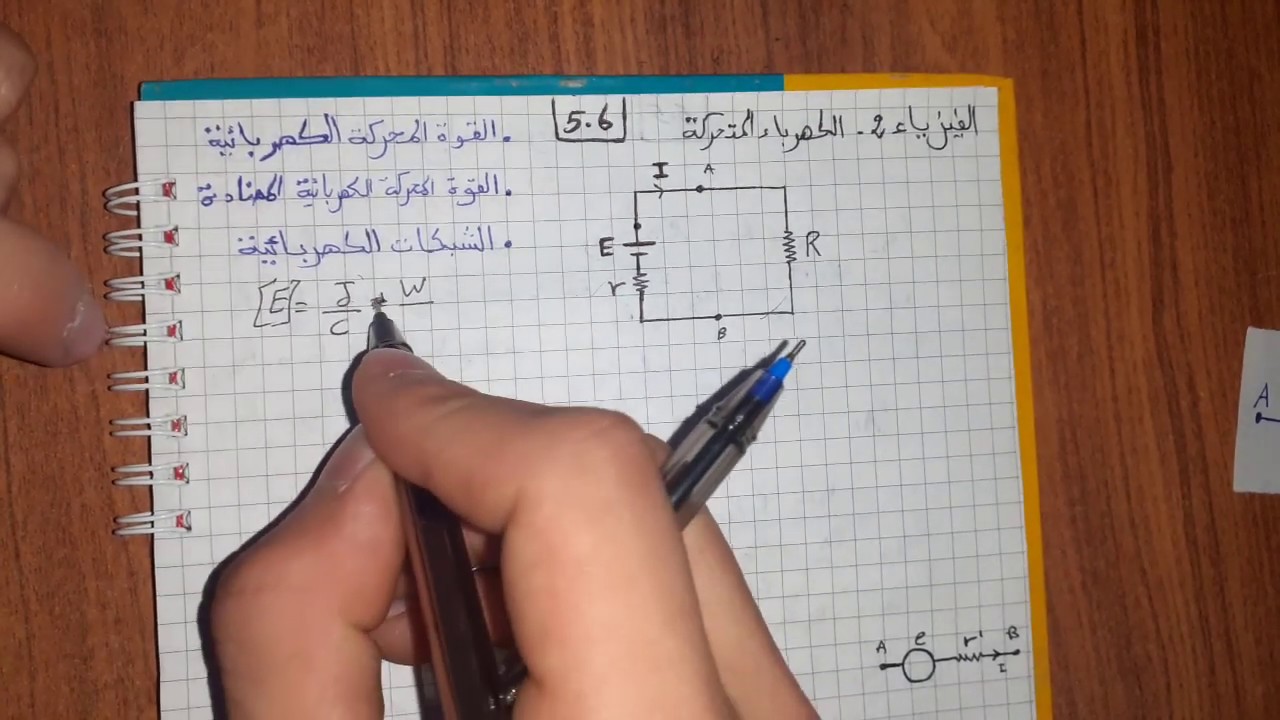 الفيزياء 2 - الكهرباء المتحركة
5.6
• القوة المحركة الكهربائية
• القوة المحركة الكهربائية المضادة
• الشبكات الكهربائية
[E] = J/C = W
I
A
E
r
R
B
A
A e r' B
I